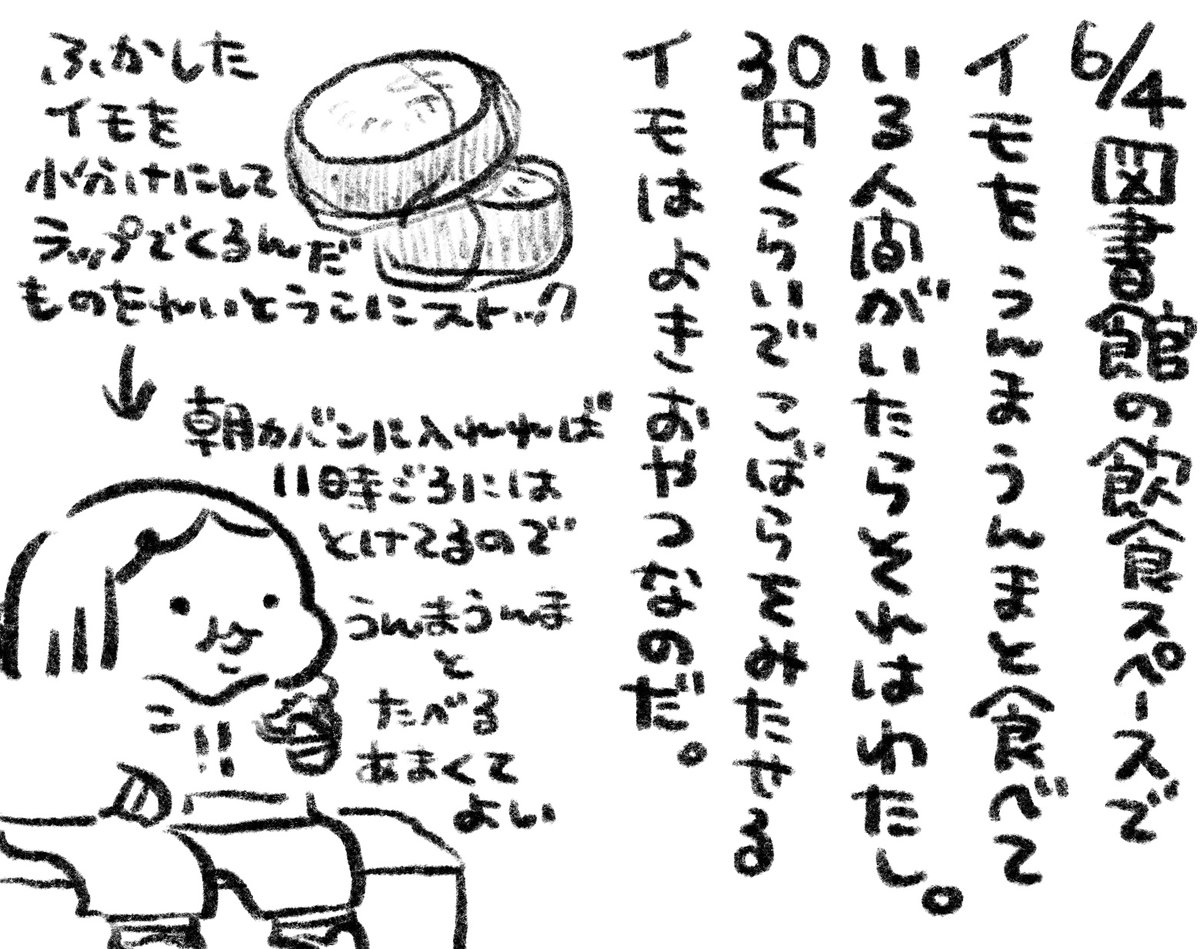 6/4 図書館の飲食スペースで
イモをうんまうんまと食べて
いる人間がいたらそれはわたし。
30円くらいでこばらをみたせる
イモはよきおやつなのだ。
ふかした
イモを
小分けにして
ラップでくるんだ
ものをれいとうこにストック
↓
朝カバンに入れれば
11時ごろには
とけてるので
うんまうんま
と
たべる
あまくて
よい